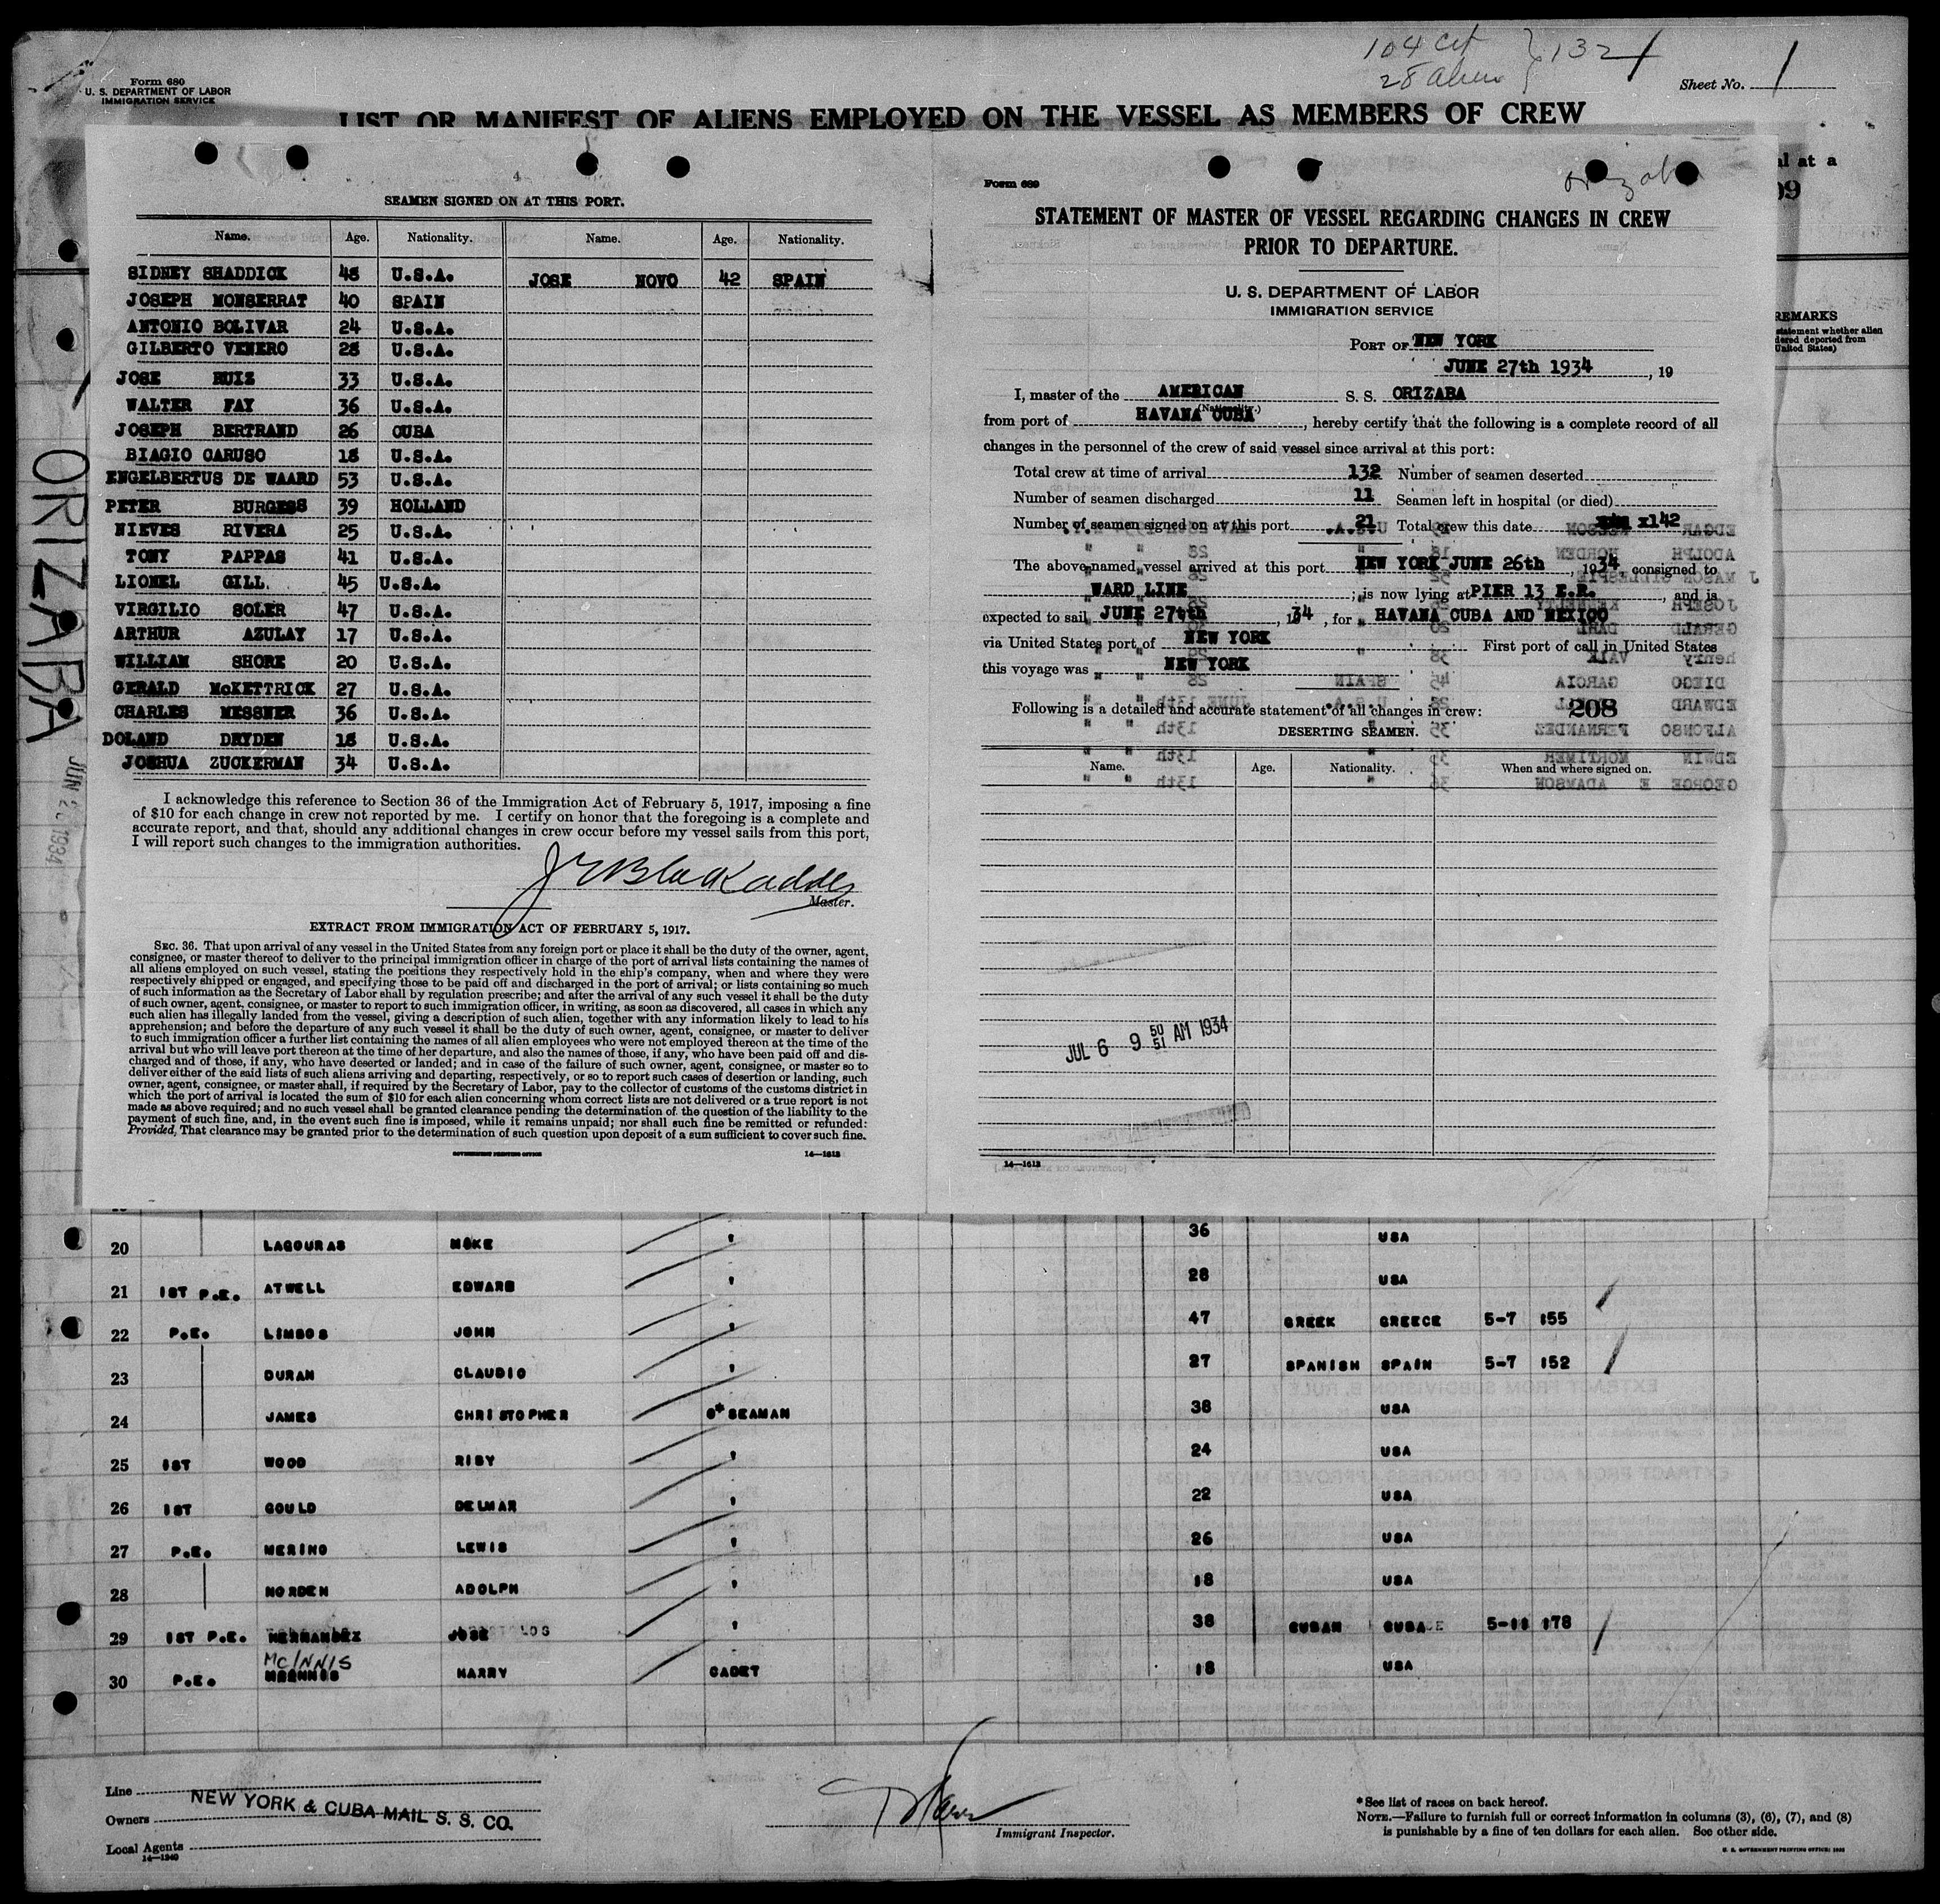 104 cit } 132
28 aliens
Form 680
U. S. DEPARTMENT OF LABOR
IMMIGRATION SERVICE
Sheet No. 1
LIST OR MANIFEST OF ALIENS EMPLOYED ON THE VESSEL AS MEMBERS OF CREW
al at a
REMARKS
ORIZABA
4
SEAMEN SIGNED ON AT THIS PORT.
Name. Age. Nationality. Name. Age. Nationality.
SIDNEY SHADDICK 48 U.S.A. JOSE NOVO 42 SPAIN
JOSEPH MONSERRAT 40 SPAIN
ANTONIO BOLIVAR 24 U.S.A.
GILBERTO VENERO 28 U.S.A.
JOSE RUIZ 33 U.S.A.
WALTER FAY 36 U.S.A.
JOSEPH BERTRAND 26 CUBA
BIAGIO CARUSO 18 U.S.A.
ENGELBERTUS DE WAARD 53 U.S.A.
PETER BURGESS 39 HOLLAND
NIEVES RIVERA 25 U.S.A.
TONY PAPPAS 41 U.S.A.
LIONEL GILL 45 U.S.A.
VIRGILIO SOLER 47 U.S.A.
ARTHUR AZULAY 17 U.S.A.
WILLIAM SHORE 20 U.S.A.
GERALD McKETTRICK 27 U.S.A.
CHARLES MESSNER 36 U.S.A.
DOLAND DRYDEN 18 U.S.A.
JOSHUA ZUCKERMAN 34 U.S.A.
I acknowledge this reference to Section 36 of the Immigration Act of February 5, 1917, imposing a fine
of $10 for each change in crew not reported by me. I certify on honor that the foregoing is a complete and
accurate report, and that, should any additional changes in crew occur before my vessel sails from this port,
I will report such changes to the immigration authorities.
Master.
EXTRACT FROM IMMIGRATION ACT OF FEBRUARY 5, 1917.
SEC. 36. That upon arrival of any vessel in the United States from any foreign port or place it shall be the duty of the owner, agent,
consignee, or master thereof to deliver to the principal immigration officer in charge of the port of arrival lists containing the names of
all aliens employed on such vessel, stating the positions they respectively hold in the ship's company, when and where they were
respectively shipped or engaged, and specifying those to be paid off and discharged in the port of arrival; or lists containing so much
of such information as the Secretary of Labor shall by regulation prescribe; and after the arrival of any such vessel it shall be the duty
of such owner, agent, consignee, or master to report to such immigration officer, in writing, as soon as discovered, all cases in which any
such alien has illegally landed from the vessel, giving a description of such alien, together with any information likely to lead to his
apprehension; and before the departure of any such vessel it shall be the duty of such owner, agent, consignee, or master to deliver
to such immigration officer a further list containing the names of all alien employees who were not employed thereon at the time of the
arrival but who will leave port thereon at the time of her departure, and also the names of those, if any, who have been paid off and dis-
charged and of those, if any, who have deserted or landed; and in case of the failure of such owner, agent, consignee, or master so to
deliver either of the said lists of such aliens arriving and departing, respectively, or so to report such cases of desertion or landing, such
owner, agent, consignee, or master shall, if required by the Secretary of Labor, pay to the collector of customs of the customs district in
which the port of arrival is located the sum of $10 for each alien concerning whom correct lists are not delivered or a true report is not
made as above required; and no such vessel shall be granted clearance pending the determination of the question of the liability to the
payment of such fine, and, in the event such fine is imposed, while it remains unpaid; nor shall such fine be remitted or refunded:
Provided, That clearance may be granted prior to the determination of such question upon deposit of a sum sufficient to cover such fine.
GOVERNMENT PRINTING OFFICE 14—1613
Form 689
Orizaba
STATEMENT OF MASTER OF VESSEL REGARDING CHANGES IN CREW
PRIOR TO DEPARTURE.
U. S. DEPARTMENT OF LABOR
IMMIGRATION SERVICE
PORT OF NEW YORK
JUNE 27th 1934, 19
I, master of the AMERICAN S. S. ORIZABA
(Nationality.)
from port of HAVANA CUBA, hereby certify that the following is a complete record of all
changes in the personnel of the crew of said vessel since arrival at this port:
Total crew at time of arrival 132 Number of seamen deserted
Number of seamen discharged 11 Seamen left in hospital (or died)
Number of seamen signed on at this port 21 Total crew this date x142
The above-named vessel arrived at this port NEW YORK JUNE 26th, 1934 consigned to
WARD LINE; is now lying at PIER 13 E.R., and is
expected to sail JUNE 27th, 1934, for HAVANA CUBA AND MEXICO
via United States port of NEW YORK First port of call in United States
this voyage was NEW YORK
Following is a detailed and accurate statement of all changes in crew: 208
DESERTING SEAMEN.
Name. Age. Nationality. When and where signed on.
JUL 6 9 50 51 AM 1934
14—1613
20 LAGOURAS MIKE " 36 USA
21 1ST P.E. ATWELL EDWARD " 28 USA
22 P.E. LIMBOS JOHN " 47 GREEK GREECE 5-7 155
23 DURAN CLAUDIO " 27 SPANISH SPAIN 5-7 152
24 JAMES CHRISTOPHER O* SEAMAN 38 USA
25 1ST WOOD RIBY " 24 USA
26 1ST GOULD DELMAR " 22 USA
27 P.E. MERINO LEWIS " 26 USA
28 NORDEN ADOLPH " 18 USA
29 1ST P.E. HERNANDEZ JOSE " 38 CUBAN CUBA 5-11 178
30 P.E. MCINNIS HARRY CADET 18 USA
Line
Owners NEW YORK & CUBA MAIL S. S. CO.
Local Agents
14—1240
Immigrant Inspector.
*See list of races on back hereof.
NOTE.—Failure to furnish full or correct information in columns (3), (6), (7), and (8)
is punishable by a fine of ten dollars for each alien. See other side.